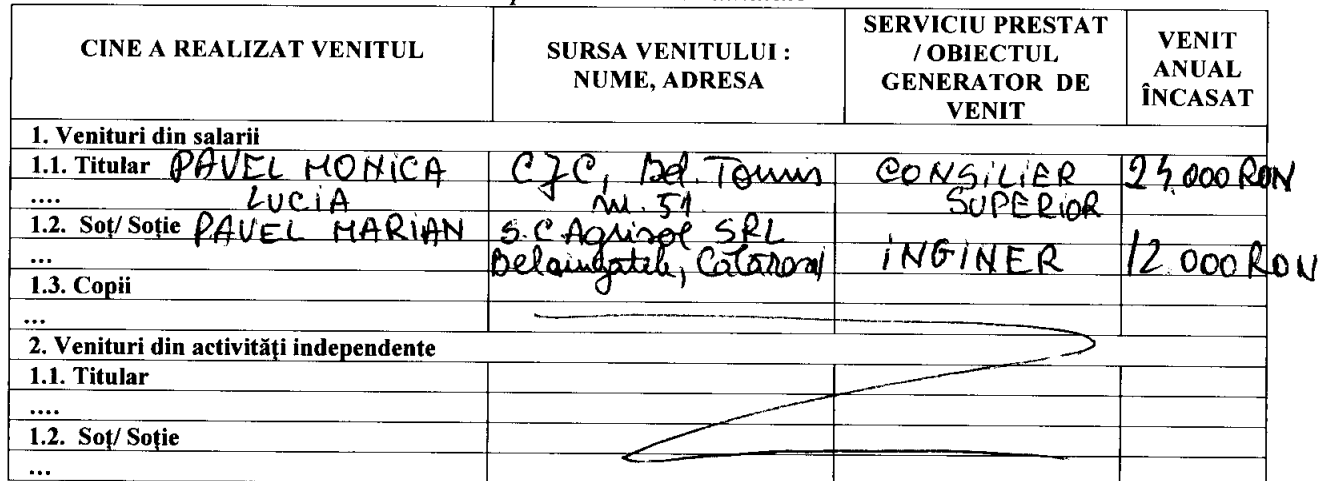 CINE A REALIZAT VENITUL
SURSA VENITULUI :
NUME, ADRESA
SERVICIU PRESTAT
/ OBIECTUL
GENERATOR DE
VENIT
VENIT
ANUAL
ÎNCASAT
1. Venituri din salarii
1.1. Titular PAVEL MONICA
CJC, Bd. Tomis
CONSILIER
24.000 RON
.... LUCIA
nr. 51
SUPERIOR
1.2. Soț/ Soție PAVEL MARIAN
S.C Agrisol SRL
...
INGINER
12.000 RON
1.3. Copii
...
2. Venituri din activități independente
1.1. Titular
....
1.2. Soț/ Soție
...